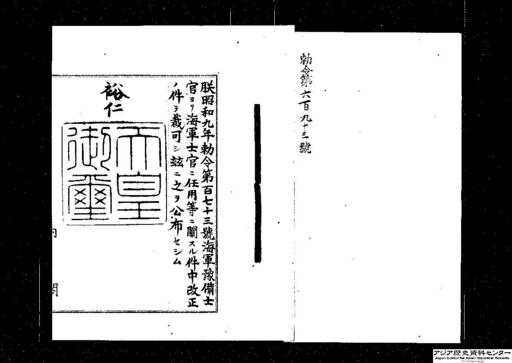 勅令第六百九十三號
朕昭和九年勅令第百七十三號海軍豫備士
官ヨリ海軍士官ニ任用等ニ關スル件中改正
ノ件ヲ裁可シ玆ニ之ヲ公布セシム
裕仁
天皇
御璽
内閣
アジア歴史資料センター
Japan Center for Asian Historical Records